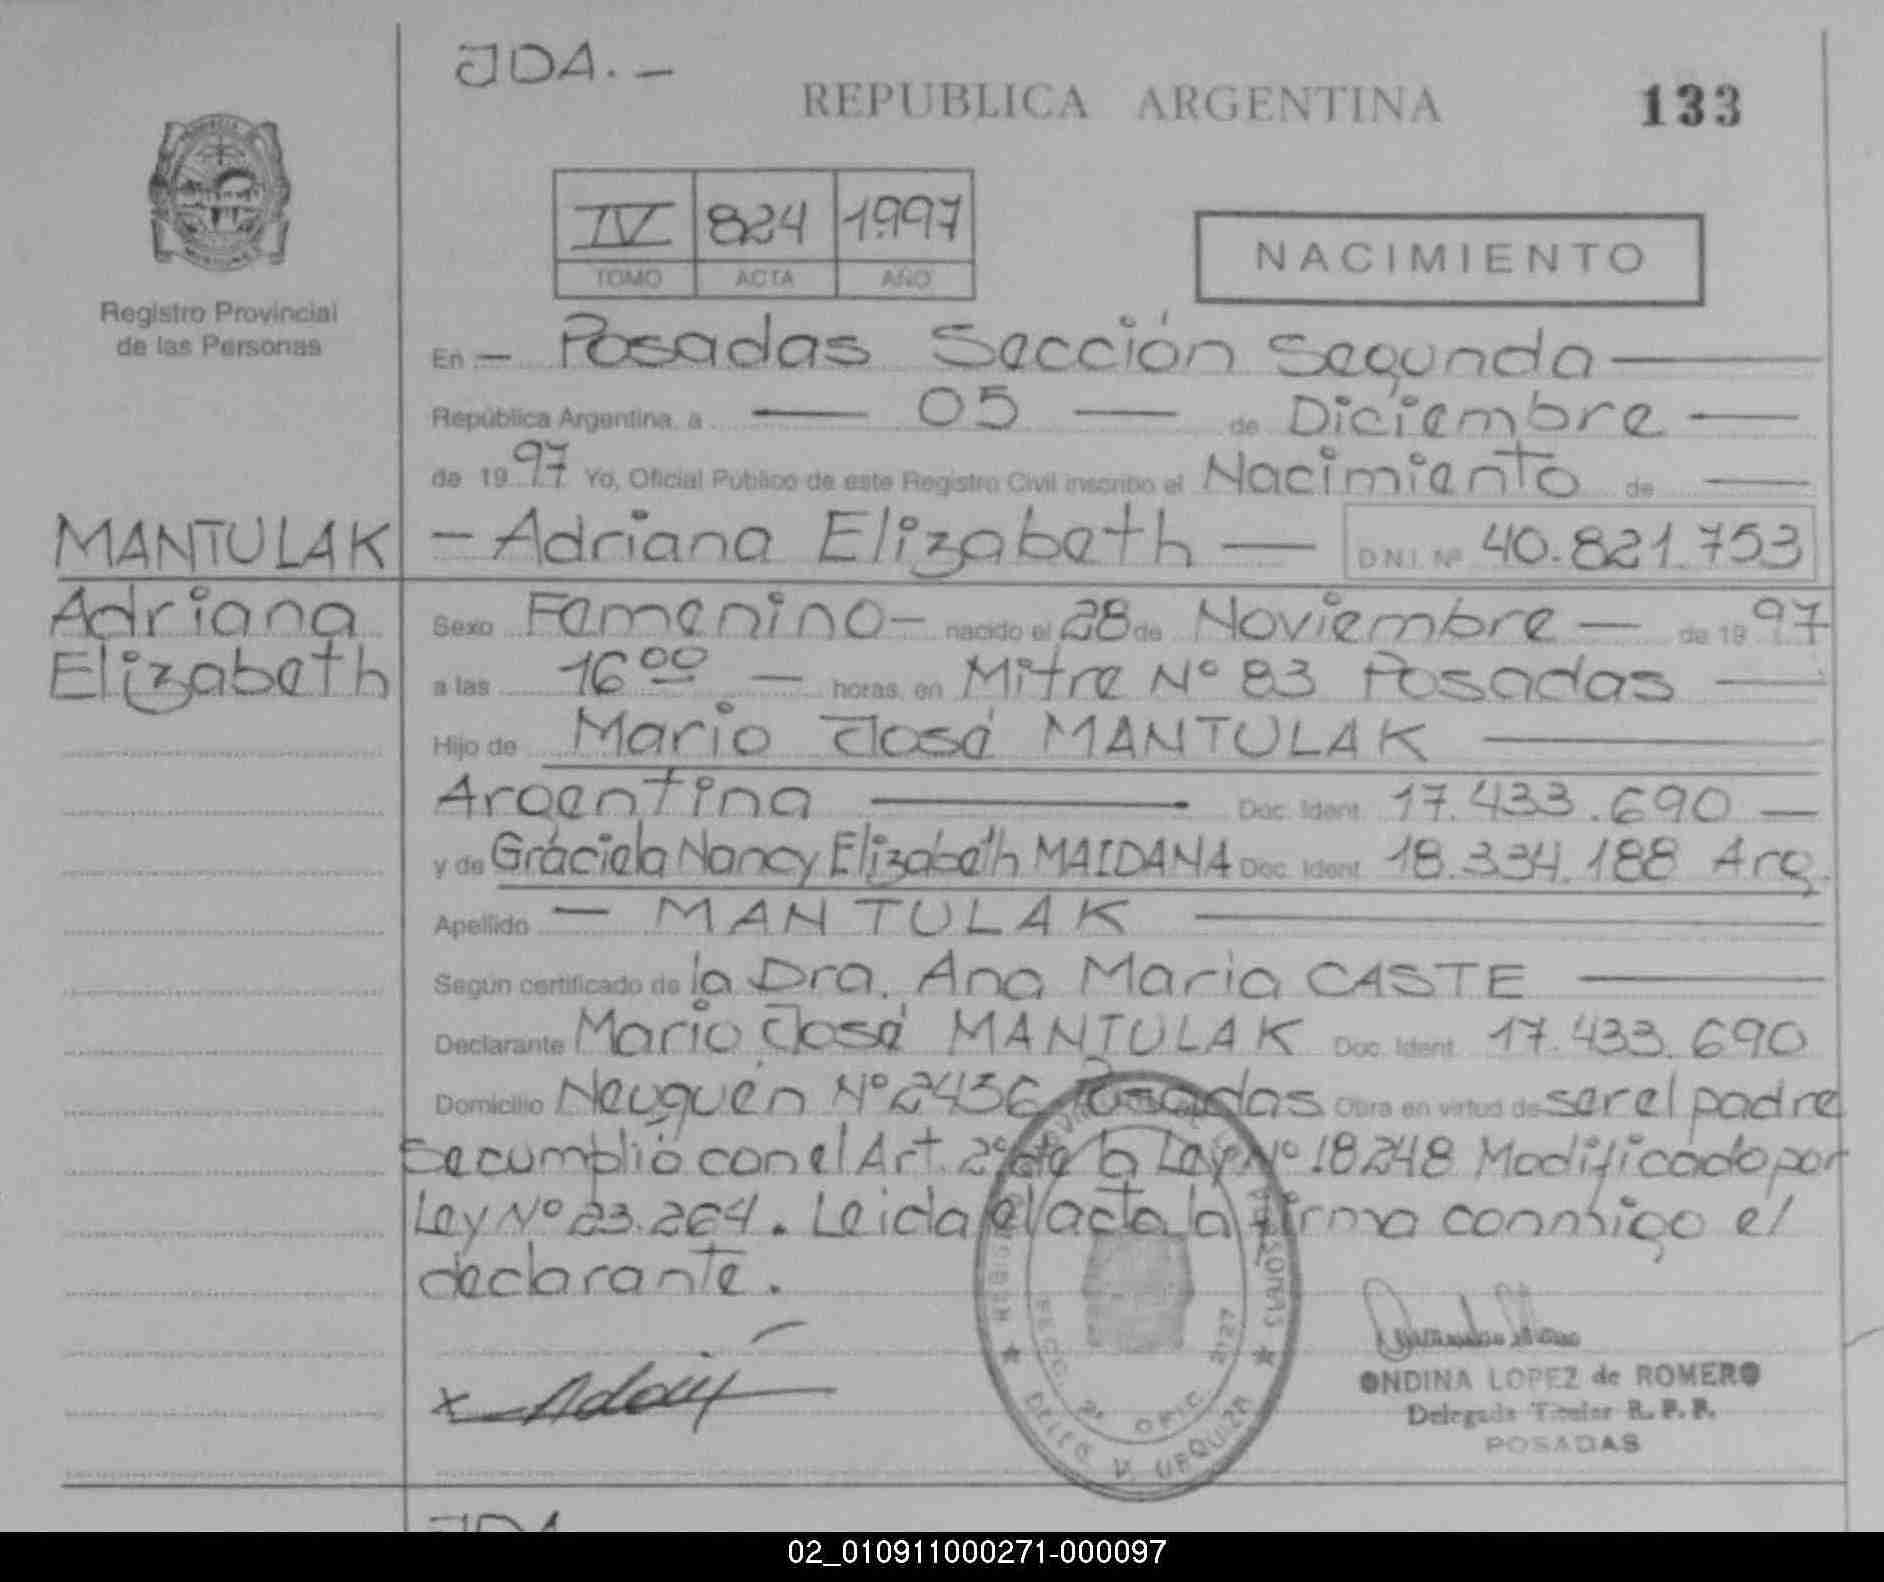 JDA. -
REPUBLICA ARGENTINA
133
IV 824 1997
TOMO ACTA AÑO
NACIMIENTO
Registro Provincial
de las Personas
En - Posadas Sección Segunda
República Argentina, a 05 de Diciembre
de 1997 Yo, Oficial Público de este Registro Civil inscribo el Nacimiento de
MANTULAK
Adriana
Elizabeth
- Adriana Elizabeth - D.N.I. Nº 40.821.753
Sexo Femenino - nacido el 28 de Noviembre - de 1997
a las 16 00 - horas, en Mitre Nº 83 Posadas
Hijo de Mario José MANTULAK
Argentina Doc. Ident. 17.433.690
y de Graciela Nancy Elizabeth MAIDANA Doc. Ident. 18.334.188 Arg.
Apellido - MANTULAK
Según certificado de la Dra. Ana Maria CASTE
Declarante Mario José MANTULAK Doc. Ident. 17.433.690
Domicilio Neuquén Nº 2436 Posadas Obra en virtud de ser el padre
Se cumplió con el Art. 2º de la Ley Nº 18248 Modificado por
Ley Nº 23.264. Leida el acta la firma conmigo el
declarante.
SECC. 2ª OFIC. 2127
DELEG. V. URQUIZA
ONDINA LOPEZ de ROMERO
Delegada Titular R. P. P.
POSADAS
JDA
02_010911000271-000097